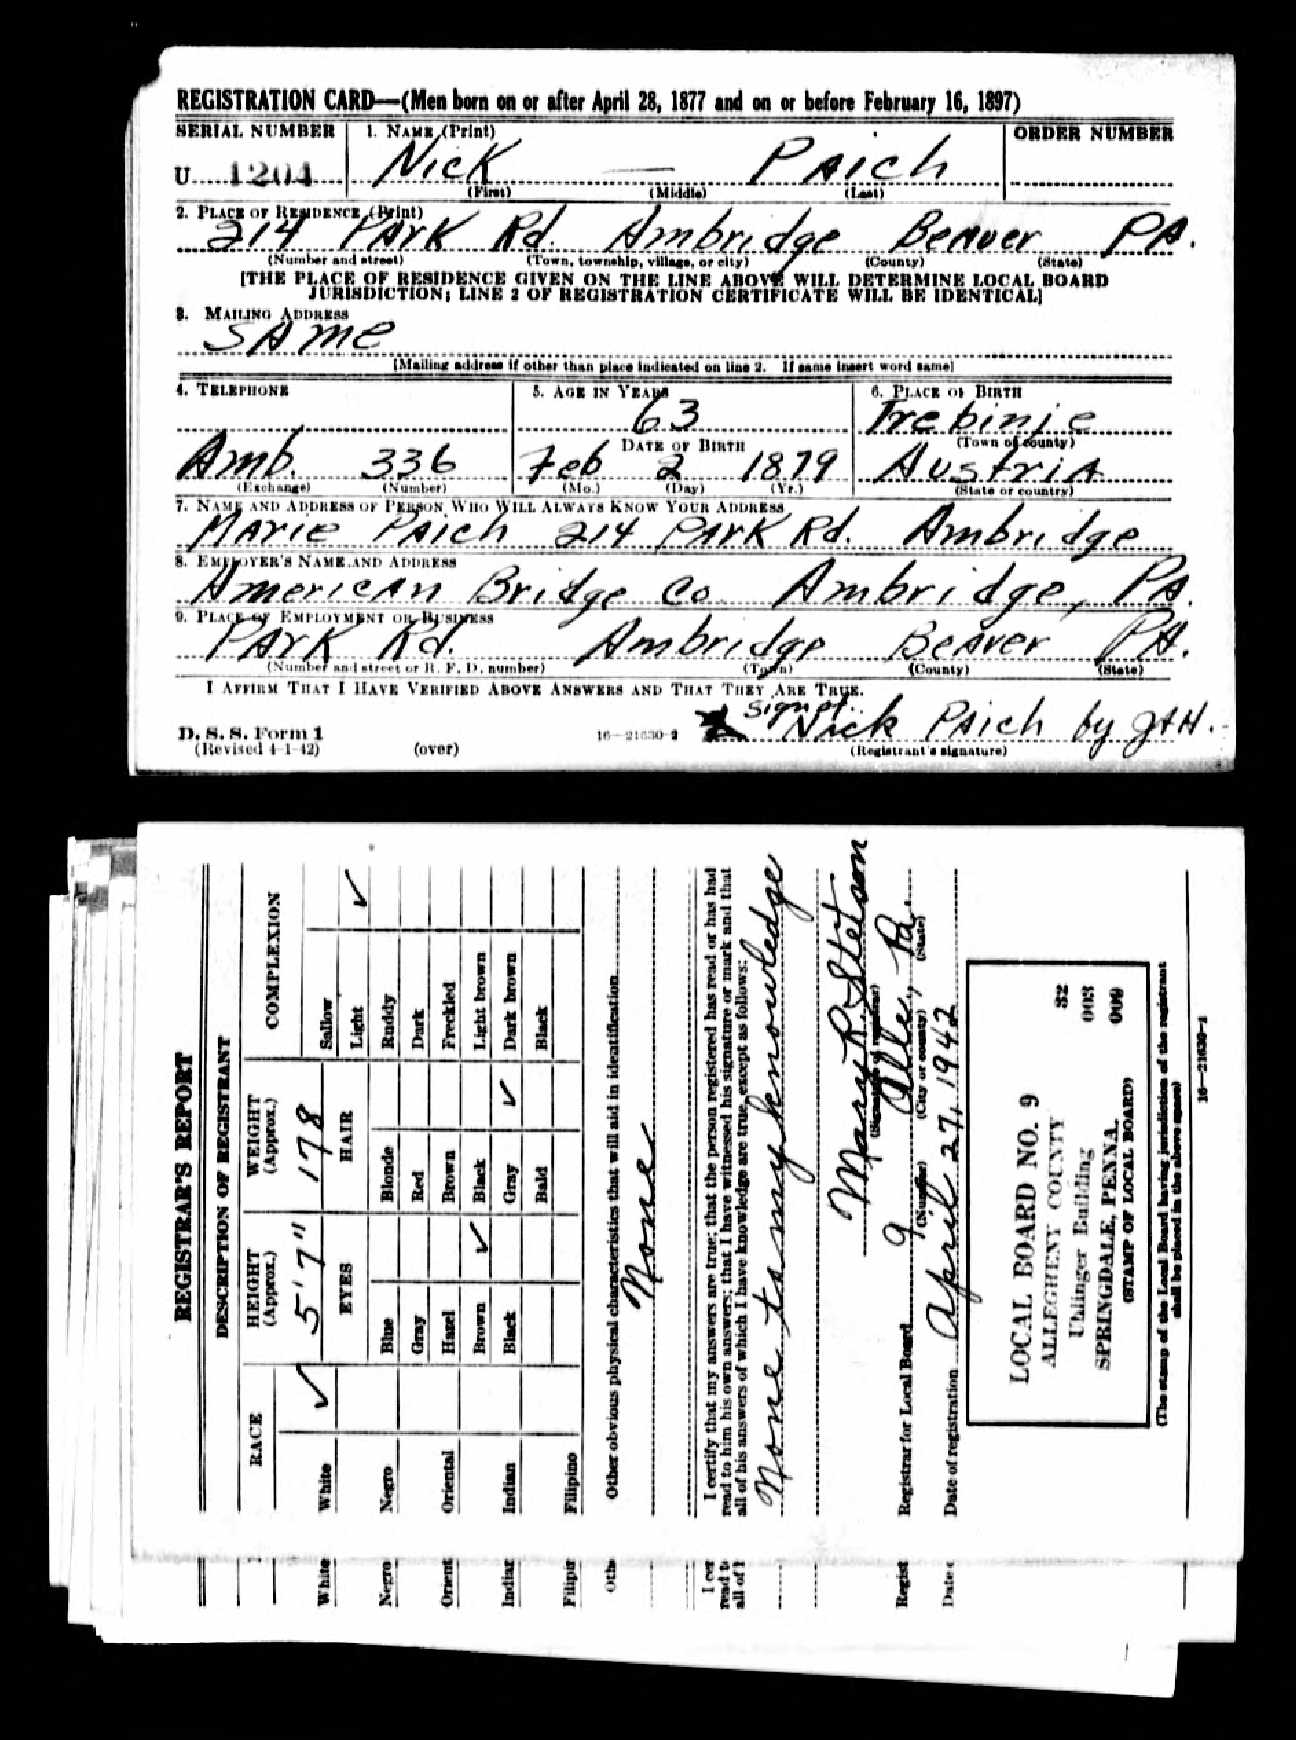 REGISTRATION CARD—(Men born on or after April 28, 1877 and on or before February 16, 1897)
SERIAL NUMBER 1. NAME (Print) ORDER NUMBER
U 1204 Nick — PAich
(First) (Middle) (Last)
2. PLACE OF RESIDENCE (Print)
214 PArK Rd. Ambridge BeAver PA.
(Number and street) (Town, township, village, or city) (County) (State)
[THE PLACE OF RESIDENCE GIVEN ON THE LINE ABOVE WILL DETERMINE LOCAL BOARD
JURISDICTION; LINE 2 OF REGISTRATION CERTIFICATE WILL BE IDENTICAL]
3. MAILING ADDRESS
SAme
[Mailing address if other than place indicated on line 2. If same insert word same]
4. TELEPHONE 5. AGE IN YEARS 6. PLACE OF BIRTH
63 Trebinje
DATE OF BIRTH (Town or county)
Amb. 336 Feb 2 1879 AustriA
(Exchange) (Number) (Mo.) (Day) (Yr.) (State or country)
7. NAME AND ADDRESS OF PERSON WHO WILL ALWAYS KNOW YOUR ADDRESS
MArie PAich 214 PArK Rd. Ambridge
8. EMPLOYER'S NAME AND ADDRESS
AmericAn Bridge Co. Ambridge, PA.
9. PLACE OF EMPLOYMENT OR BUSINESS
PArK Rd. Ambridge BeAver PA.
(Number and street or R. F. D. number) (Town) (County) (State)
I AFFIRM THAT I HAVE VERIFIED ABOVE ANSWERS AND THAT THEY ARE TRUE.
Nick PAich by
D. S. S. Form 1
(Revised 4-1-42) (over) 16—21630-2 (Registrant's signature)
REGISTRAR'S REPORT
DESCRIPTION OF REGISTRANT
RACE HEIGHT (Approx.) WEIGHT (Approx.) COMPLEXION
5'7" 178
White ✓ EYES HAIR Sallow
Light ✓
Blue Blonde Ruddy
Negro Gray Red Dark
Hazel Brown Freckled
Oriental Brown ✓ Black Light brown
Indian Black Gray ✓ Dark brown
Filipino Bald Black
Other obvious physical characteristics that will aid in identification
None
I certify that my answers are true; that the person registered has read or has had
read to him his own answers; that I have witnessed his signature or mark and that
all of his answers of which I have knowledge are true, except as follows:
None to my knowledge
Mary R. Stetson
(Signature of registrar)
Registrar for Local Board 9 Alle., Pa.
(Number) (City or county) (State)
Date of registration April 27, 1942
LOCAL BOARD NO. 9 32
ALLEGHENY COUNTY 003
Uhlinger Building 009
SPRINGDALE, PENNA.
(STAMP OF LOCAL BOARD)
(The stamp of the Local Board having jurisdiction of the registrant
shall be placed in the above space)
16—21630-2
White
Negro
Orient
Indian
Filipin
Othe
I cer
read t
all of h
Regist
Date o